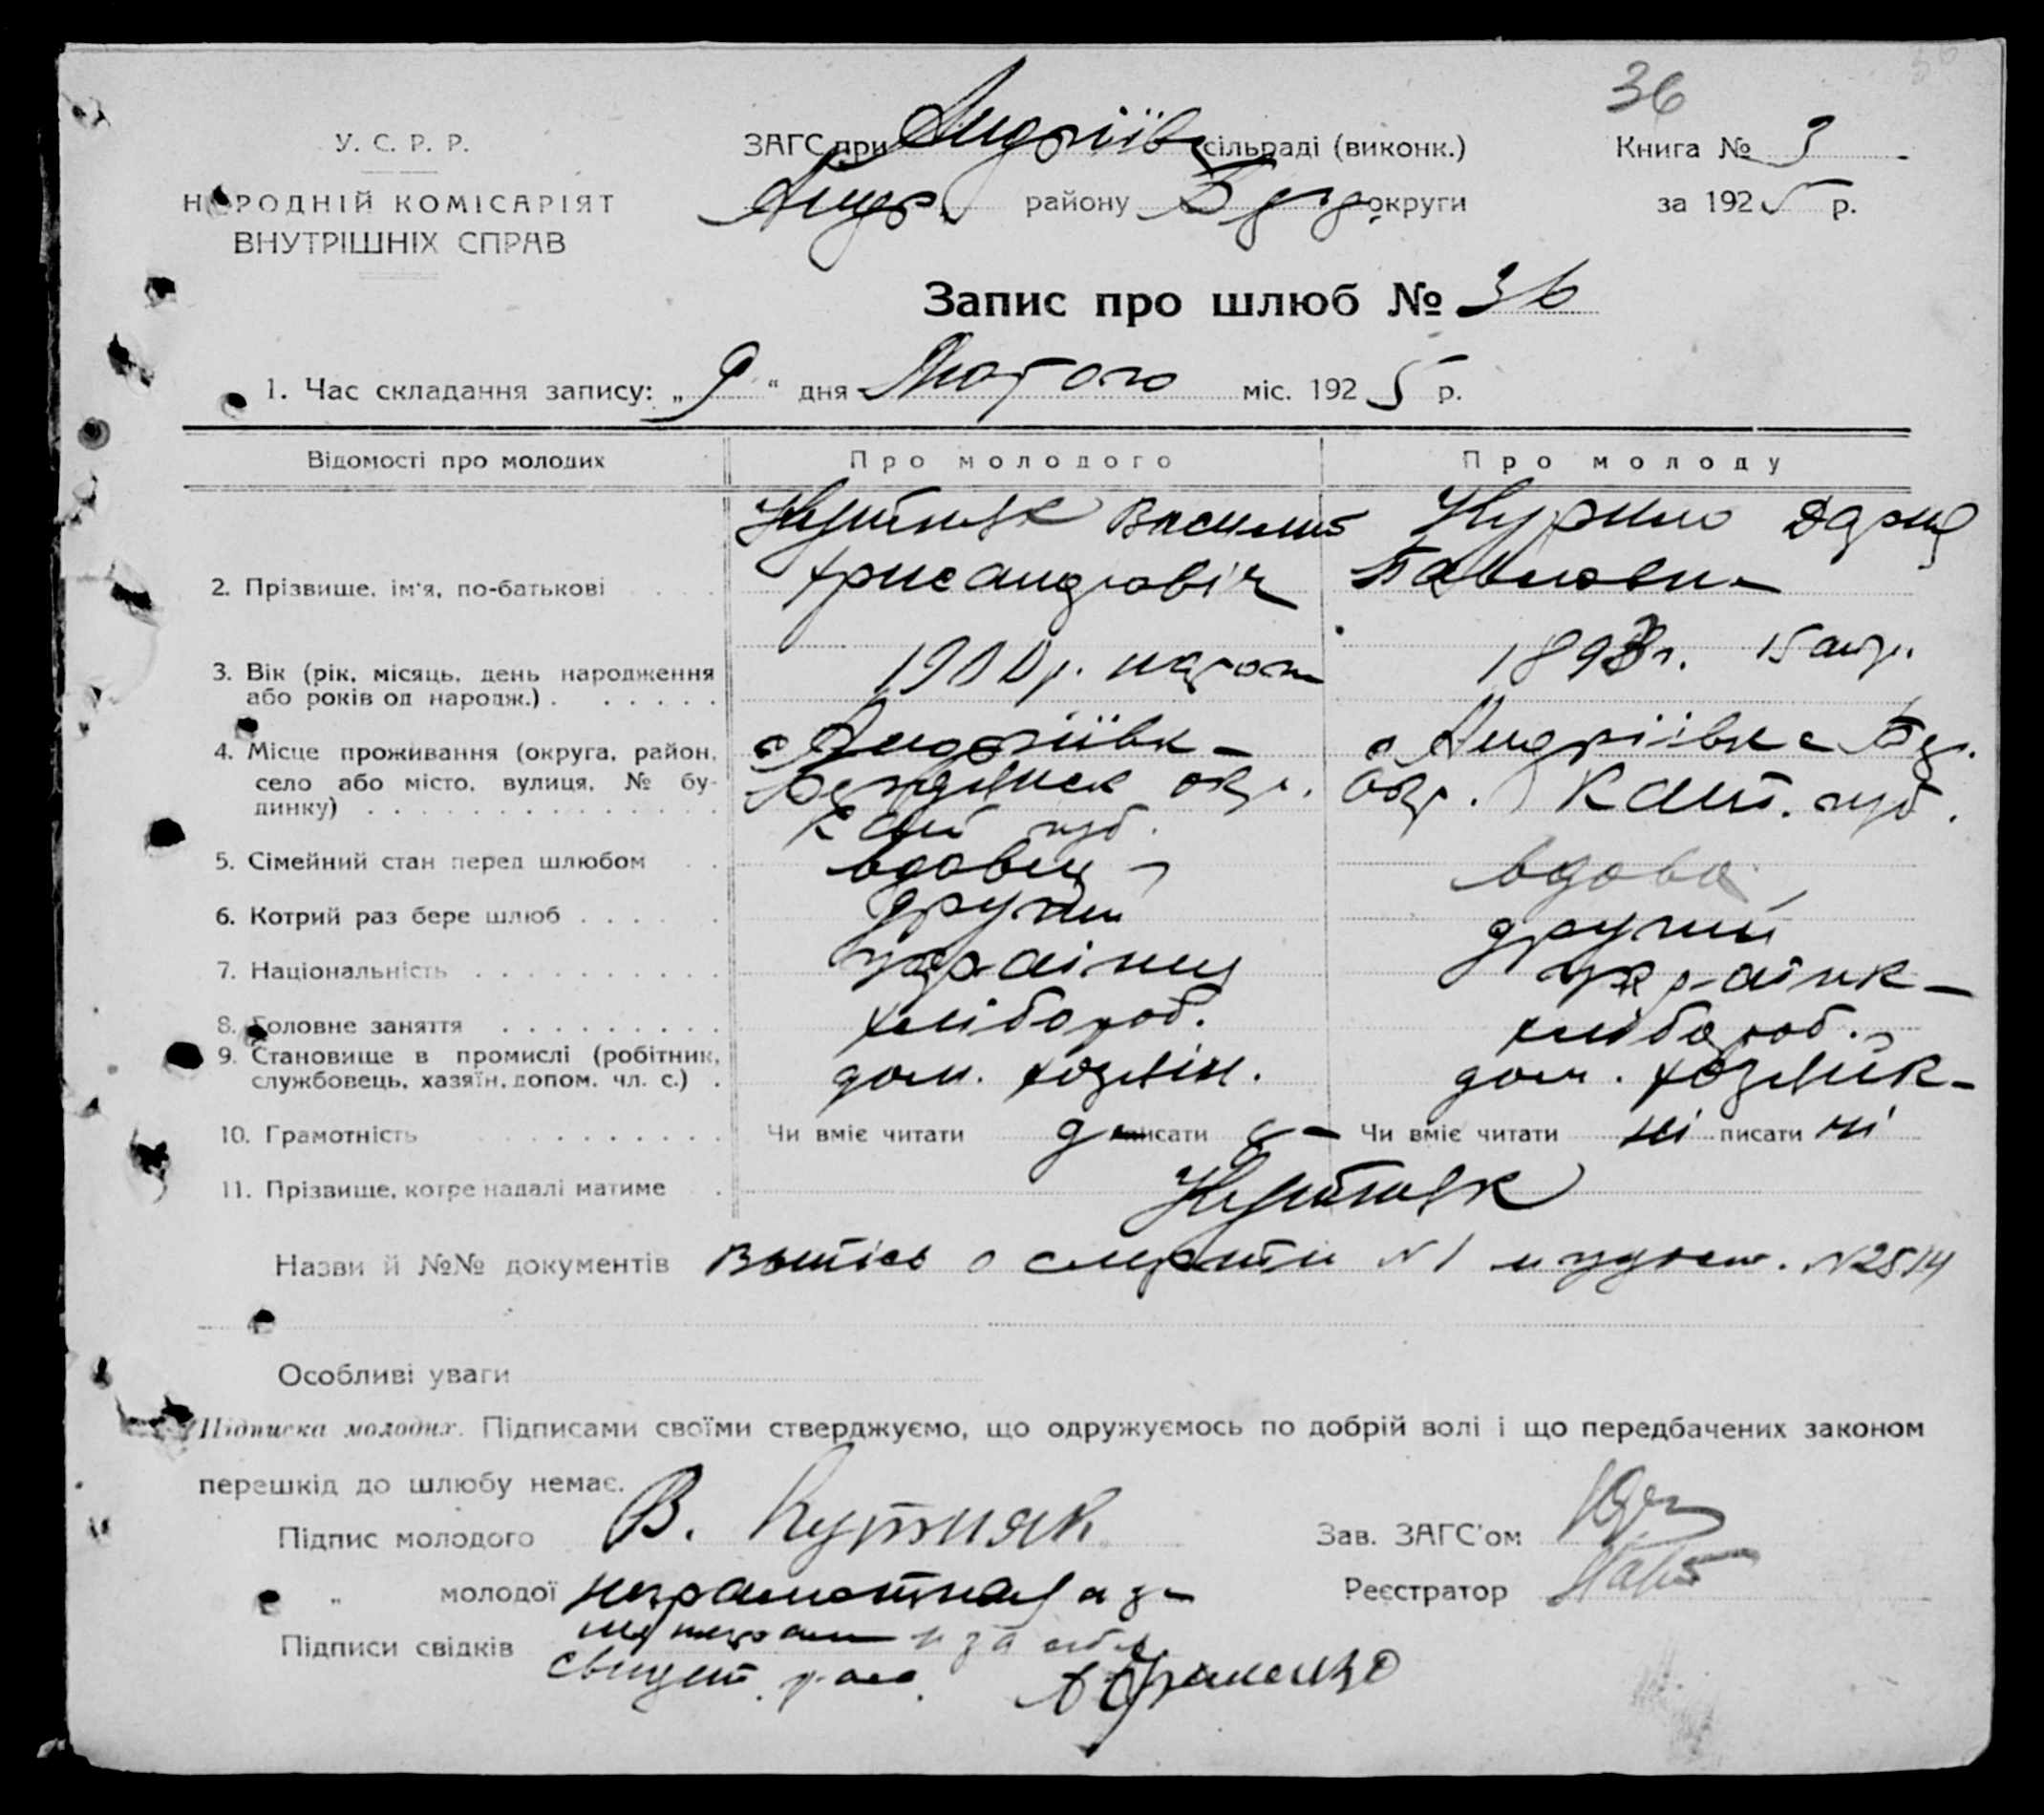 36
У. С. Р. Р.
НАРОДНІЙ КОМІСАРІЯТ
ВНУТРІШНІХ СПРАВ
ЗАГС при Андріїв сільраді (виконк.)
Андр. району Берд. округи
Книга №
за 1925 р.
Запис про шлюб № 36
1. Час складання запису: „9“ дня Лютого міс. 1925 р.
Відомості про молодих Про молодого Про молоду
2. Прізвище, ім'я, по-батькові
Кутняк Василь Курило Дария
Хрисандрович Павловн
3. Вік (рік, місяць, день народження
або років од народж.)
1900 р. 1893 г. 15
4. Місце проживання (округа, район,
село або місто, вулиця, № бу-
динку)
с Андріївк с Андріівка Бер.
Бердянск окр. окр. Кат. губ.
Кат губ.
5. Сімейний стан перед шлюбом вдовец вдова
6. Котрий раз бере шлюб другий другий
7. Національність українец українк
8. Головне заняття хлібороб. хлібороб.
9. Становище в промислі (робітник,
службовець, хазяїн, допом. чл. с.)
дом. хозяін. дом. хозяйк
10. Грамотність Чи вміє читати писати Чи вміє читати ні писати ні
11. Прізвище, котре надалі матиме Кутняк
Назви й №№ документів Выпісь о смерти N 1 и удост. N2514
Особливі уваги
Підписка молодих. Підписами своїми стверджуємо, що одружуємось по добрій волі і що передбачених законом
перешкід до шлюбу немає.
Підпис молодого В. Кутняк
Зав. ЗАГС'ом
„ молодої неграмотная а за
Реєстратор
Підписи свідків неграм и за себя
свидет.